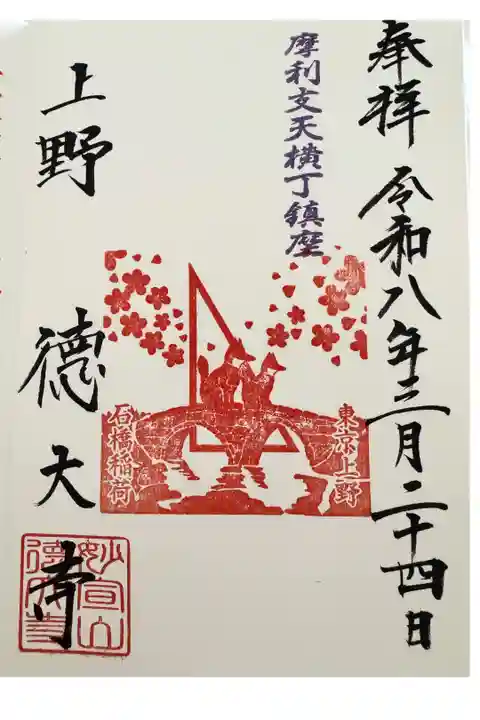 奉拝 令和八年三月二十四日
摩利支天横丁鎮座
東京上野
石橋稲荷
上野 徳大寺
妙宣山
徳大寺